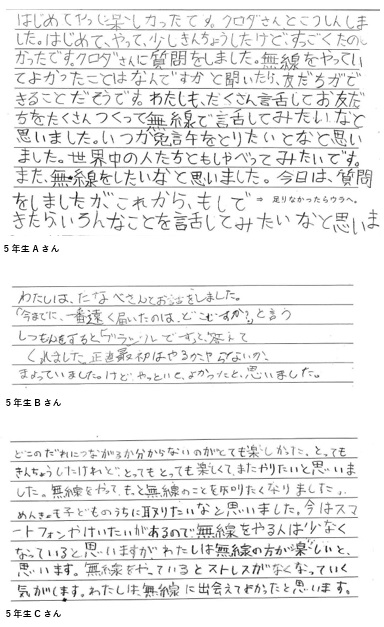 はじめてやったに楽しかったです。クロダさんとこうしんしま
した。はじめて、やって、少しきんちょうしたけど、すっごくたのし
かったです。クロダさんに質問をしました。無線をやってい
てよかったことはなんですかと聞いたら、友だちがで
きることだそうです。わたしも、たくさん話してお友だ
ちをたくさんつくって無線で話してみたいなと
思いました。いつか免許をとりたいとなと思い
ました。世界中の人たちともしゃべってみたいです。
また、無線をしたいなと思いました。今日は、質問
をしましたがこれから、もしで ⇒ 足りなかったらウラへ。
きたらいろんなことを話してみたいなと思いま
5年生Aさん
わたしは、たなべさんとお話をしました。
「今までに、一番遠く届いたのは、どこですか?」と言う
しつもんをすると「ブラジル」ですと、答えて
くれました。正直最初はやるかやらないか、
まよっていました。けど、やっといて、よかったと、思いました。
5年生Bさん
どこのだれにつながるか分からないのがとても楽しかった。とっても
きんちょうしたけれど、とってもとっても楽しくて、またやりたいと思いま
した。無線をやって、もっと無線のことを知りたくなりました。
めんきょも子どものうちに取りたいなと思いました。今はスマ
ートフォンやけいたいがあるので無線をやる人は少なく
なっていると思いますがわたしは無線の方が楽しいと、
思います。無線をやっているとストレスがなくなっていく
気がします。わたしは、無線に出会えてよかったと思います。
5年生Cさん